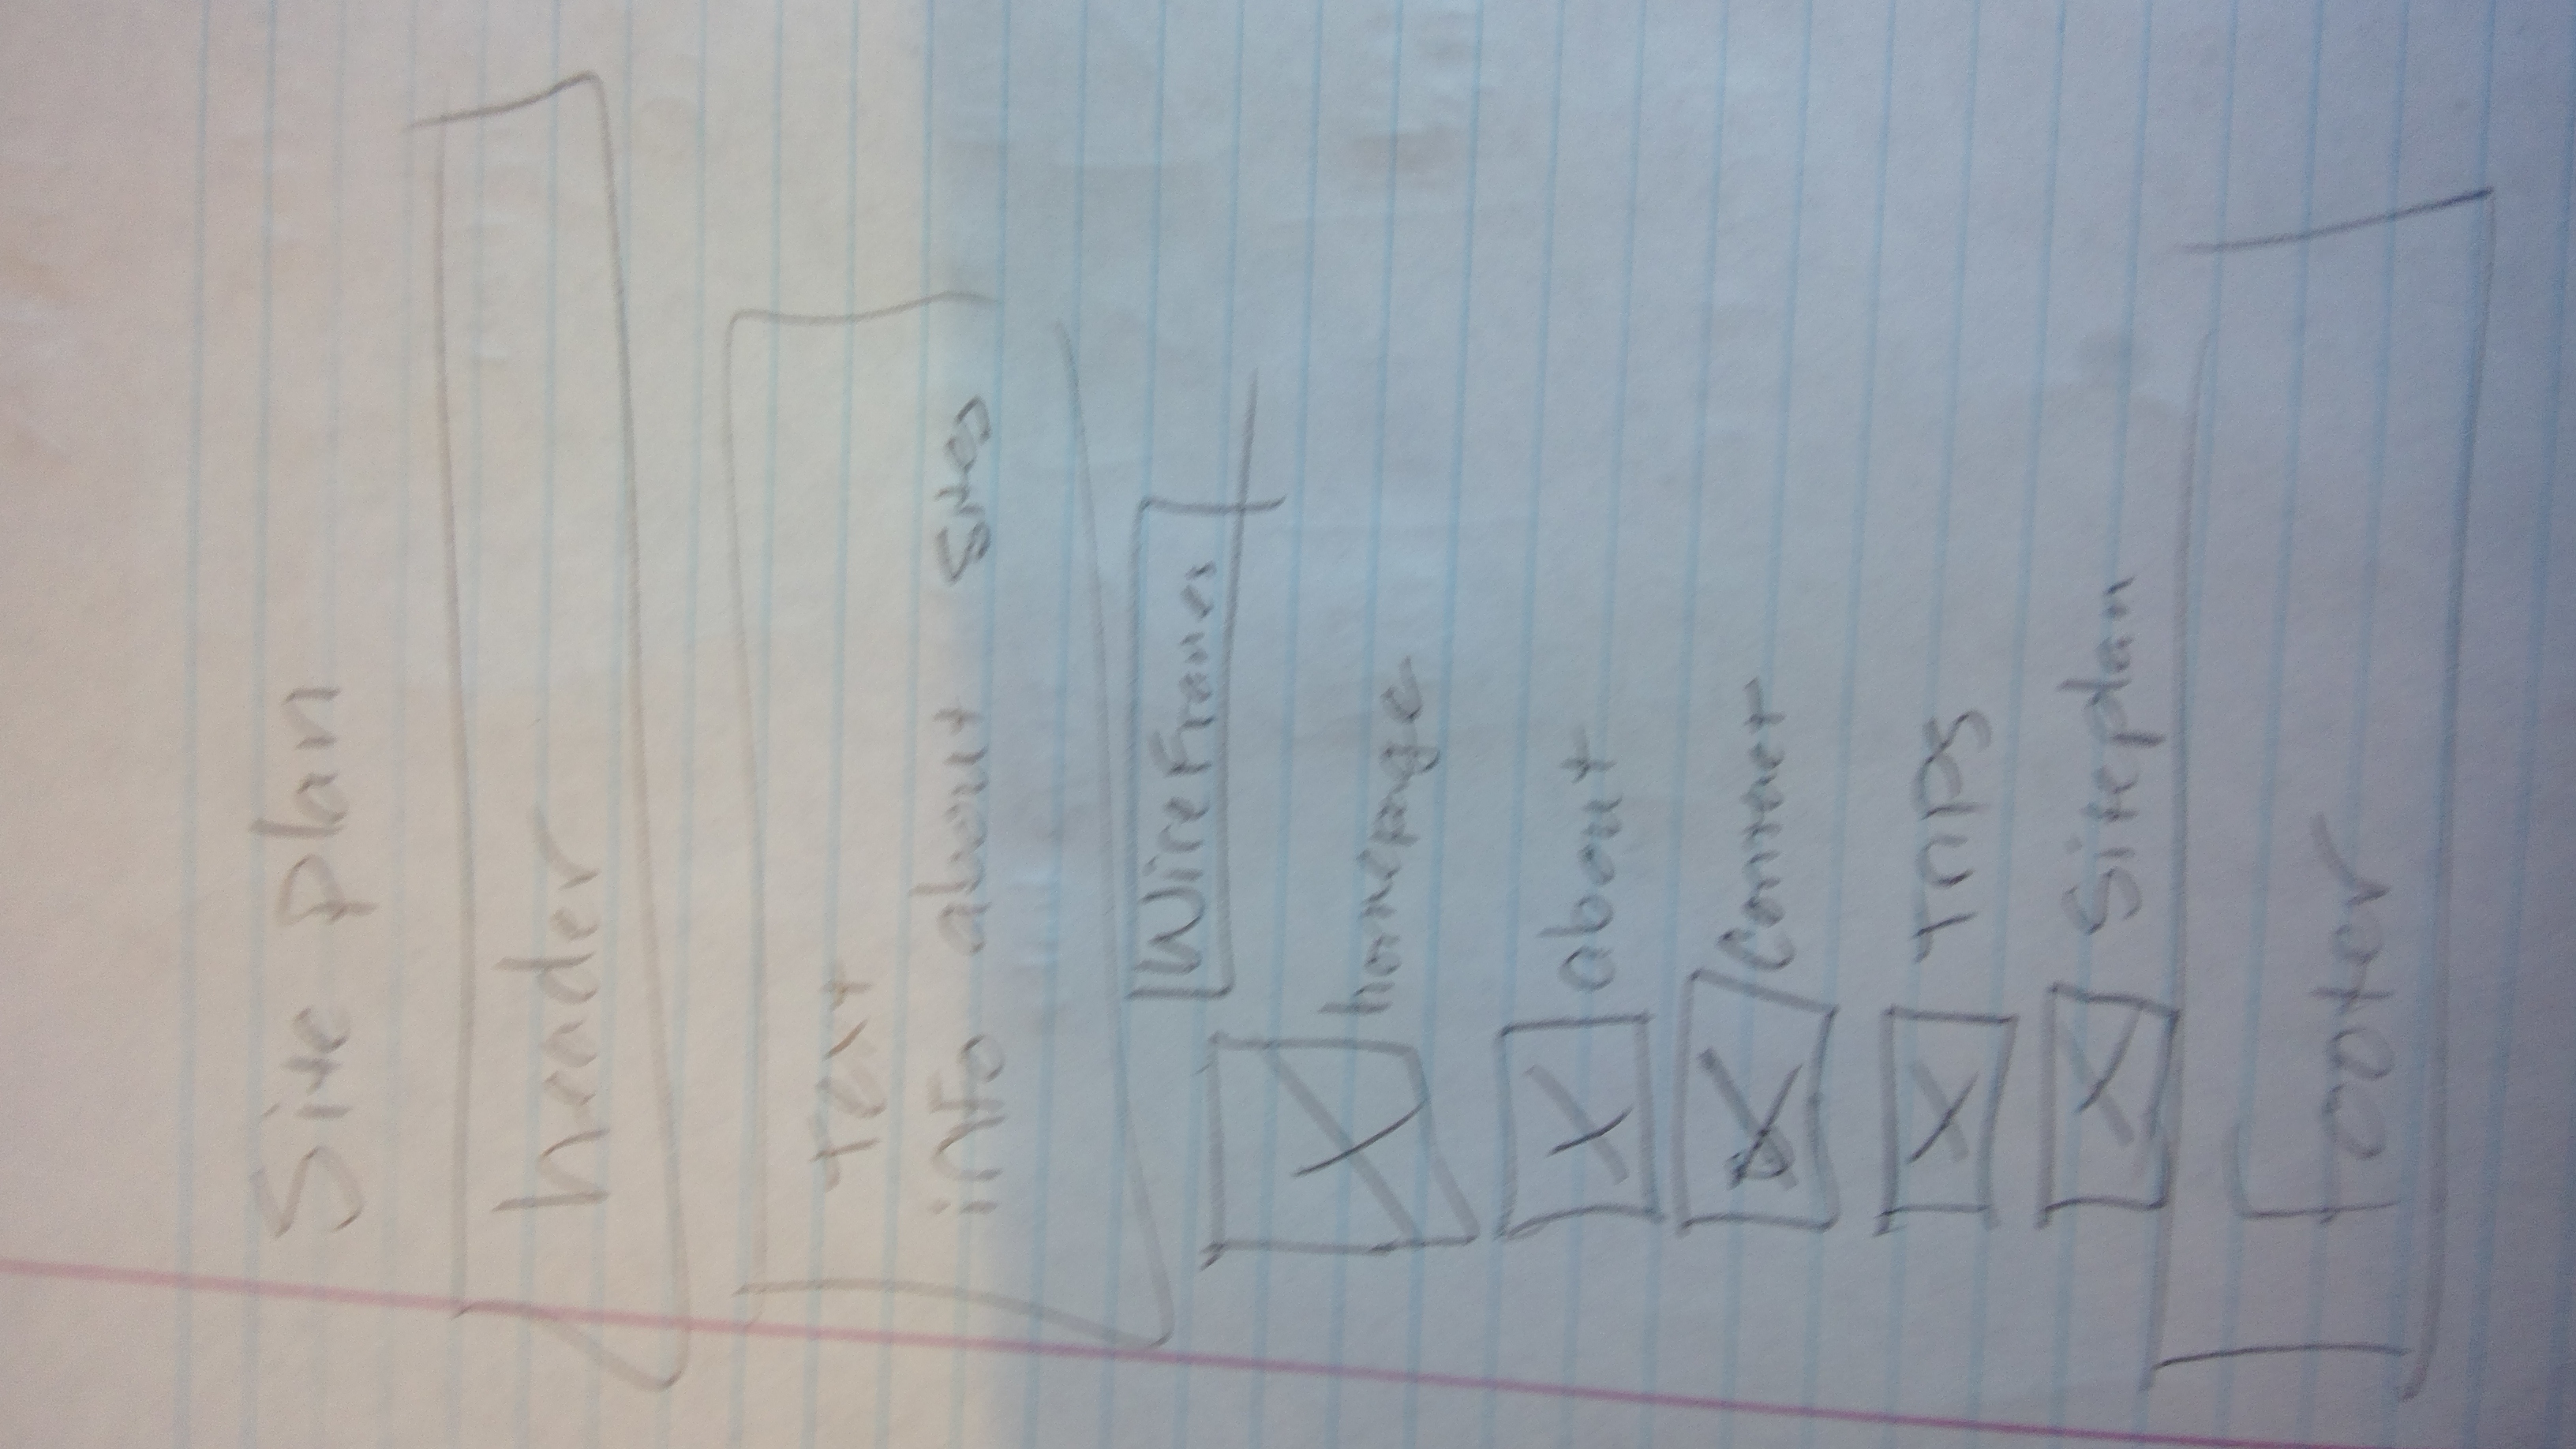 Site plan
header
text
info about sites
Wireframes
homepage
about
Contact
trips
Siteplan
footer